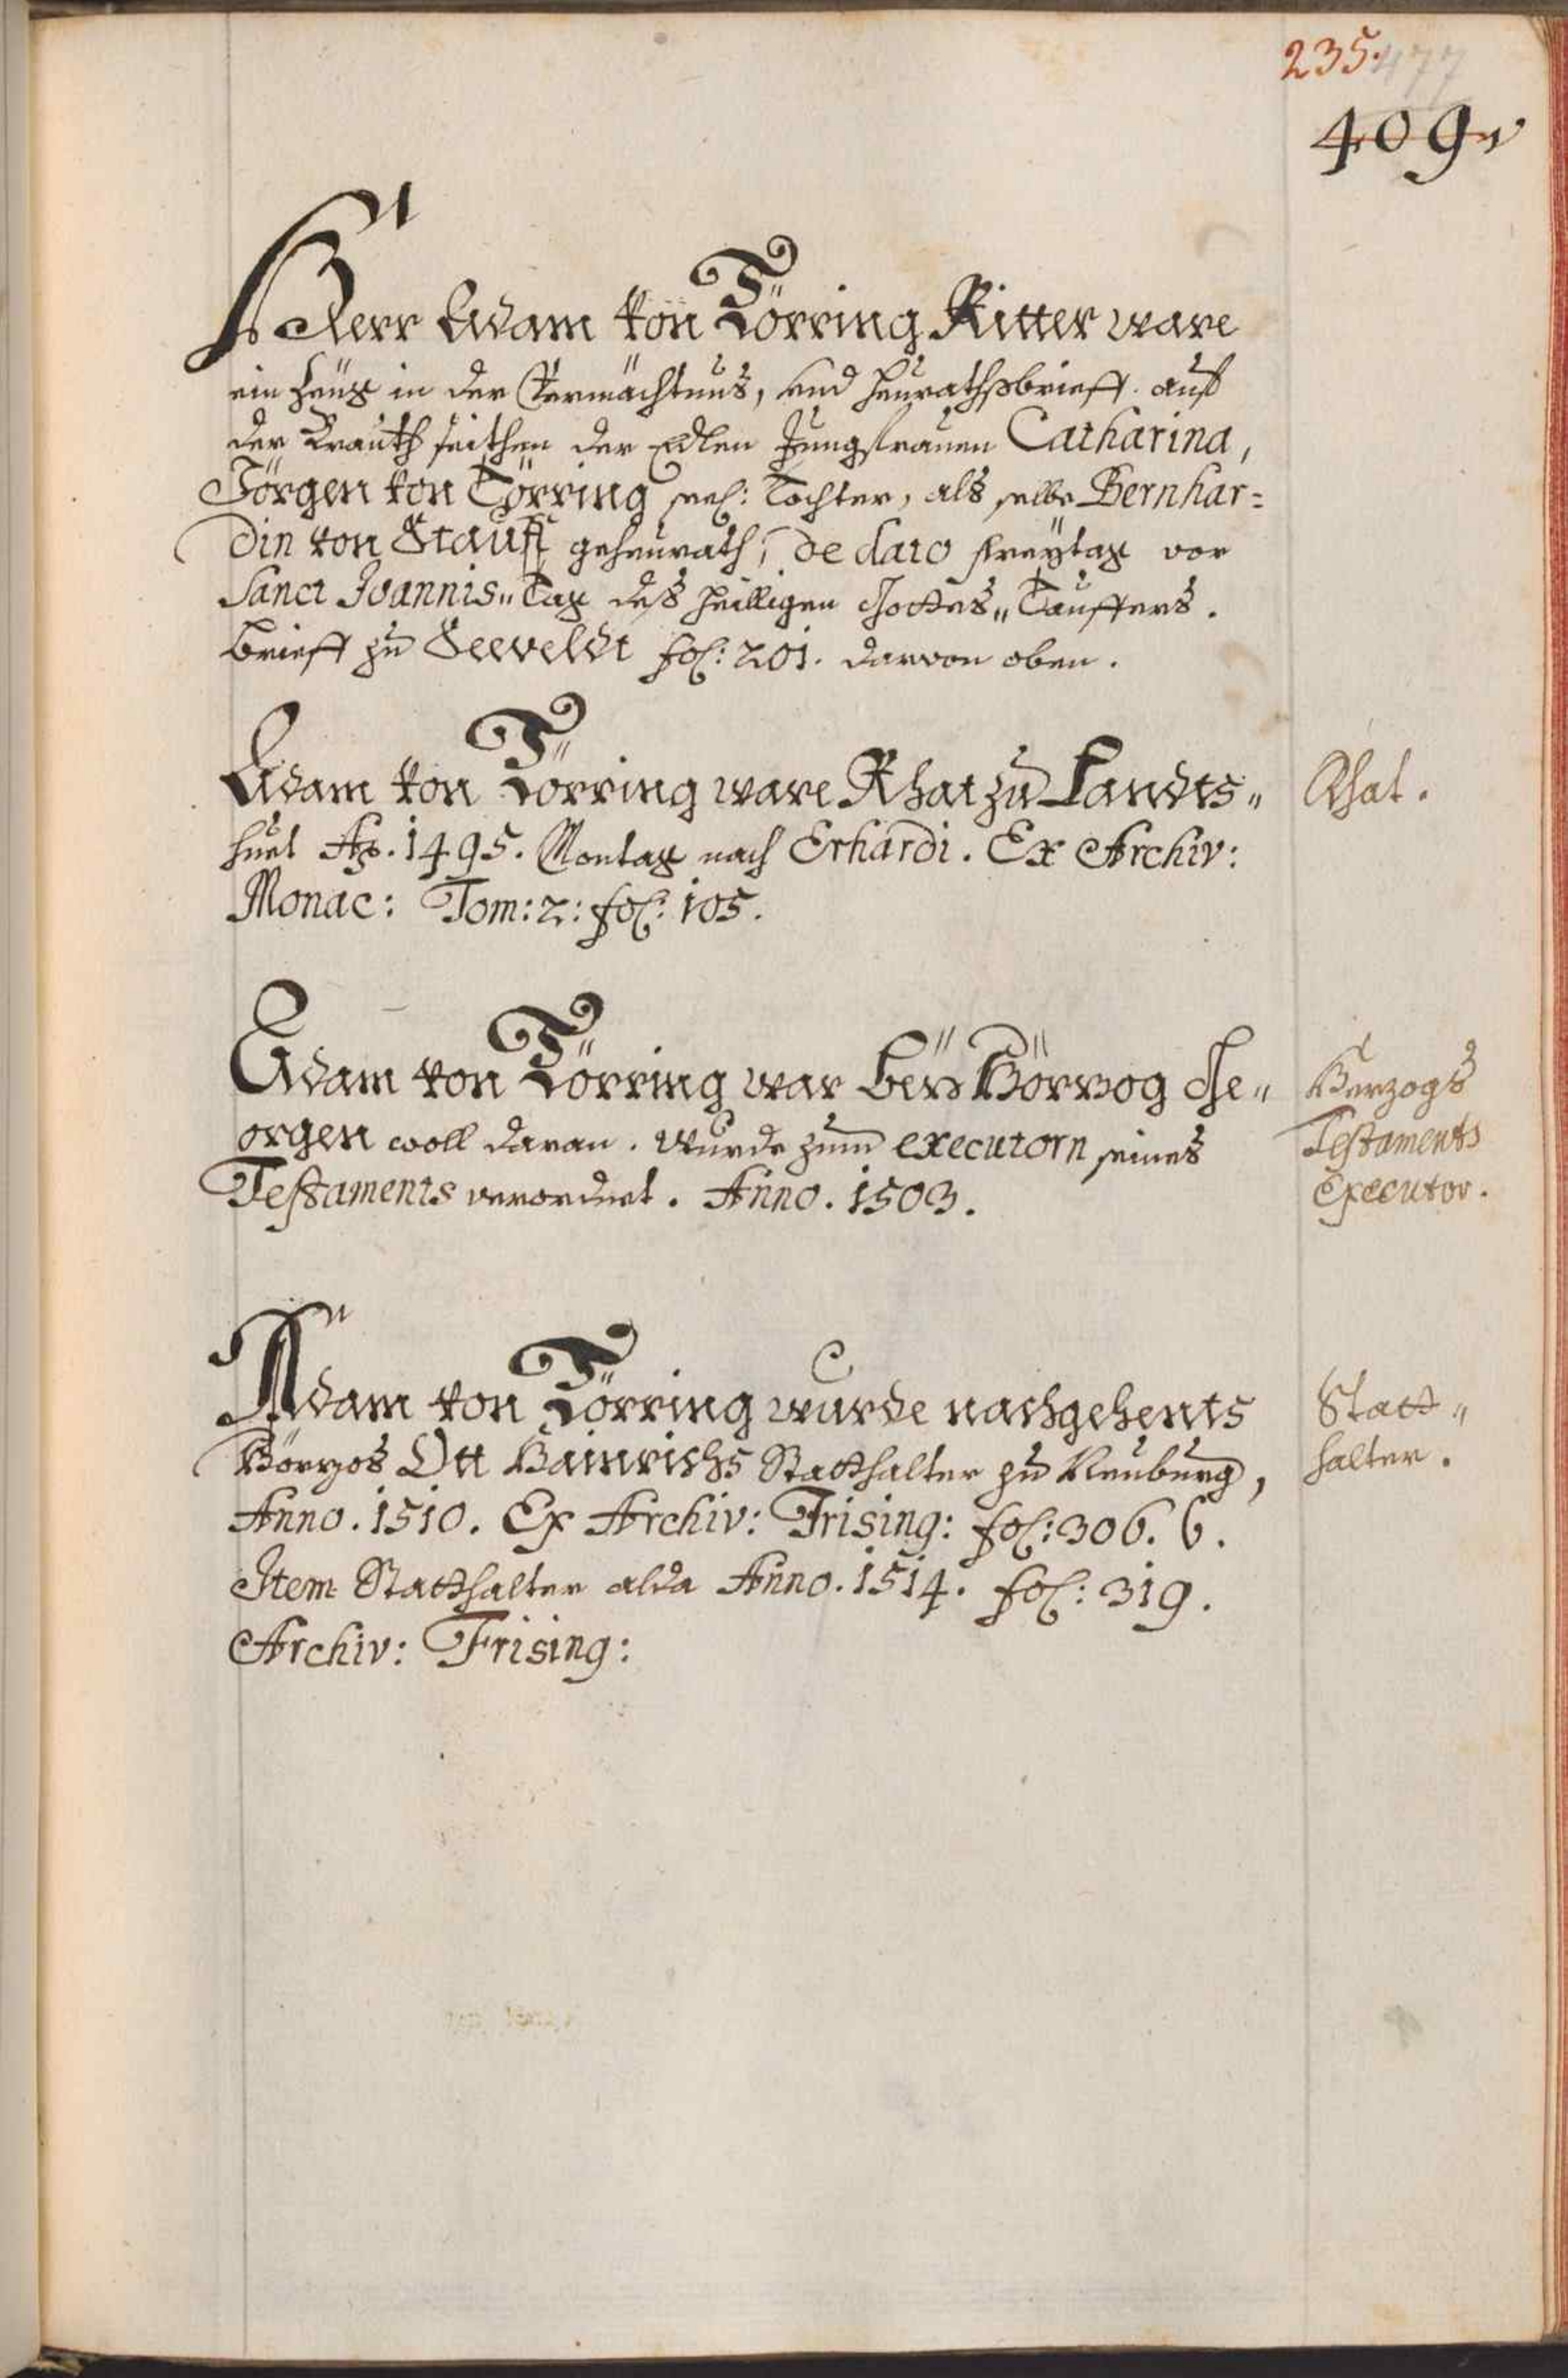 235.
477
409
Herr Adam von Törring Ritter ware
ein Zeug in der Vermächtnus, und Heurathsbrieff auf
der Brauth seithen der Edlen Jungfrauen Catharina,
Jörgen von Törring seel: Tochter, als selbe Bernhar=
din von Stauff geheurath, de dato Freytag vor
Sanct Joannis„ Tag deß heilligen Gottes„ Tauffers.
Brieff zu Seeveldt fol: 201. darvon oben.
Adam von Törring ware Rhat zu Landts„
huet Ao. 1495. Montag nach Erhardi. Ex Archiv:
Monac: Tom: 2: fol: 105.
Rhat.
Adam von Törring war bey Hörzog Ge„
orgen woll daran. Wurde zum executorn seines
Testaments verordnet. Anno. 1503.
Herzogs
Testaments
Executor.
Adam von Törring wurde nachgehents
Hörzos Ott Hainrichs Statthalter zu Neuburg,
Anno. 1510. Ex Archiv: Frising: fol: 306. 6.
Item Statthalter alda Anno. 1514. fol: 319.
Archiv: Frising:
Statt„
halter.